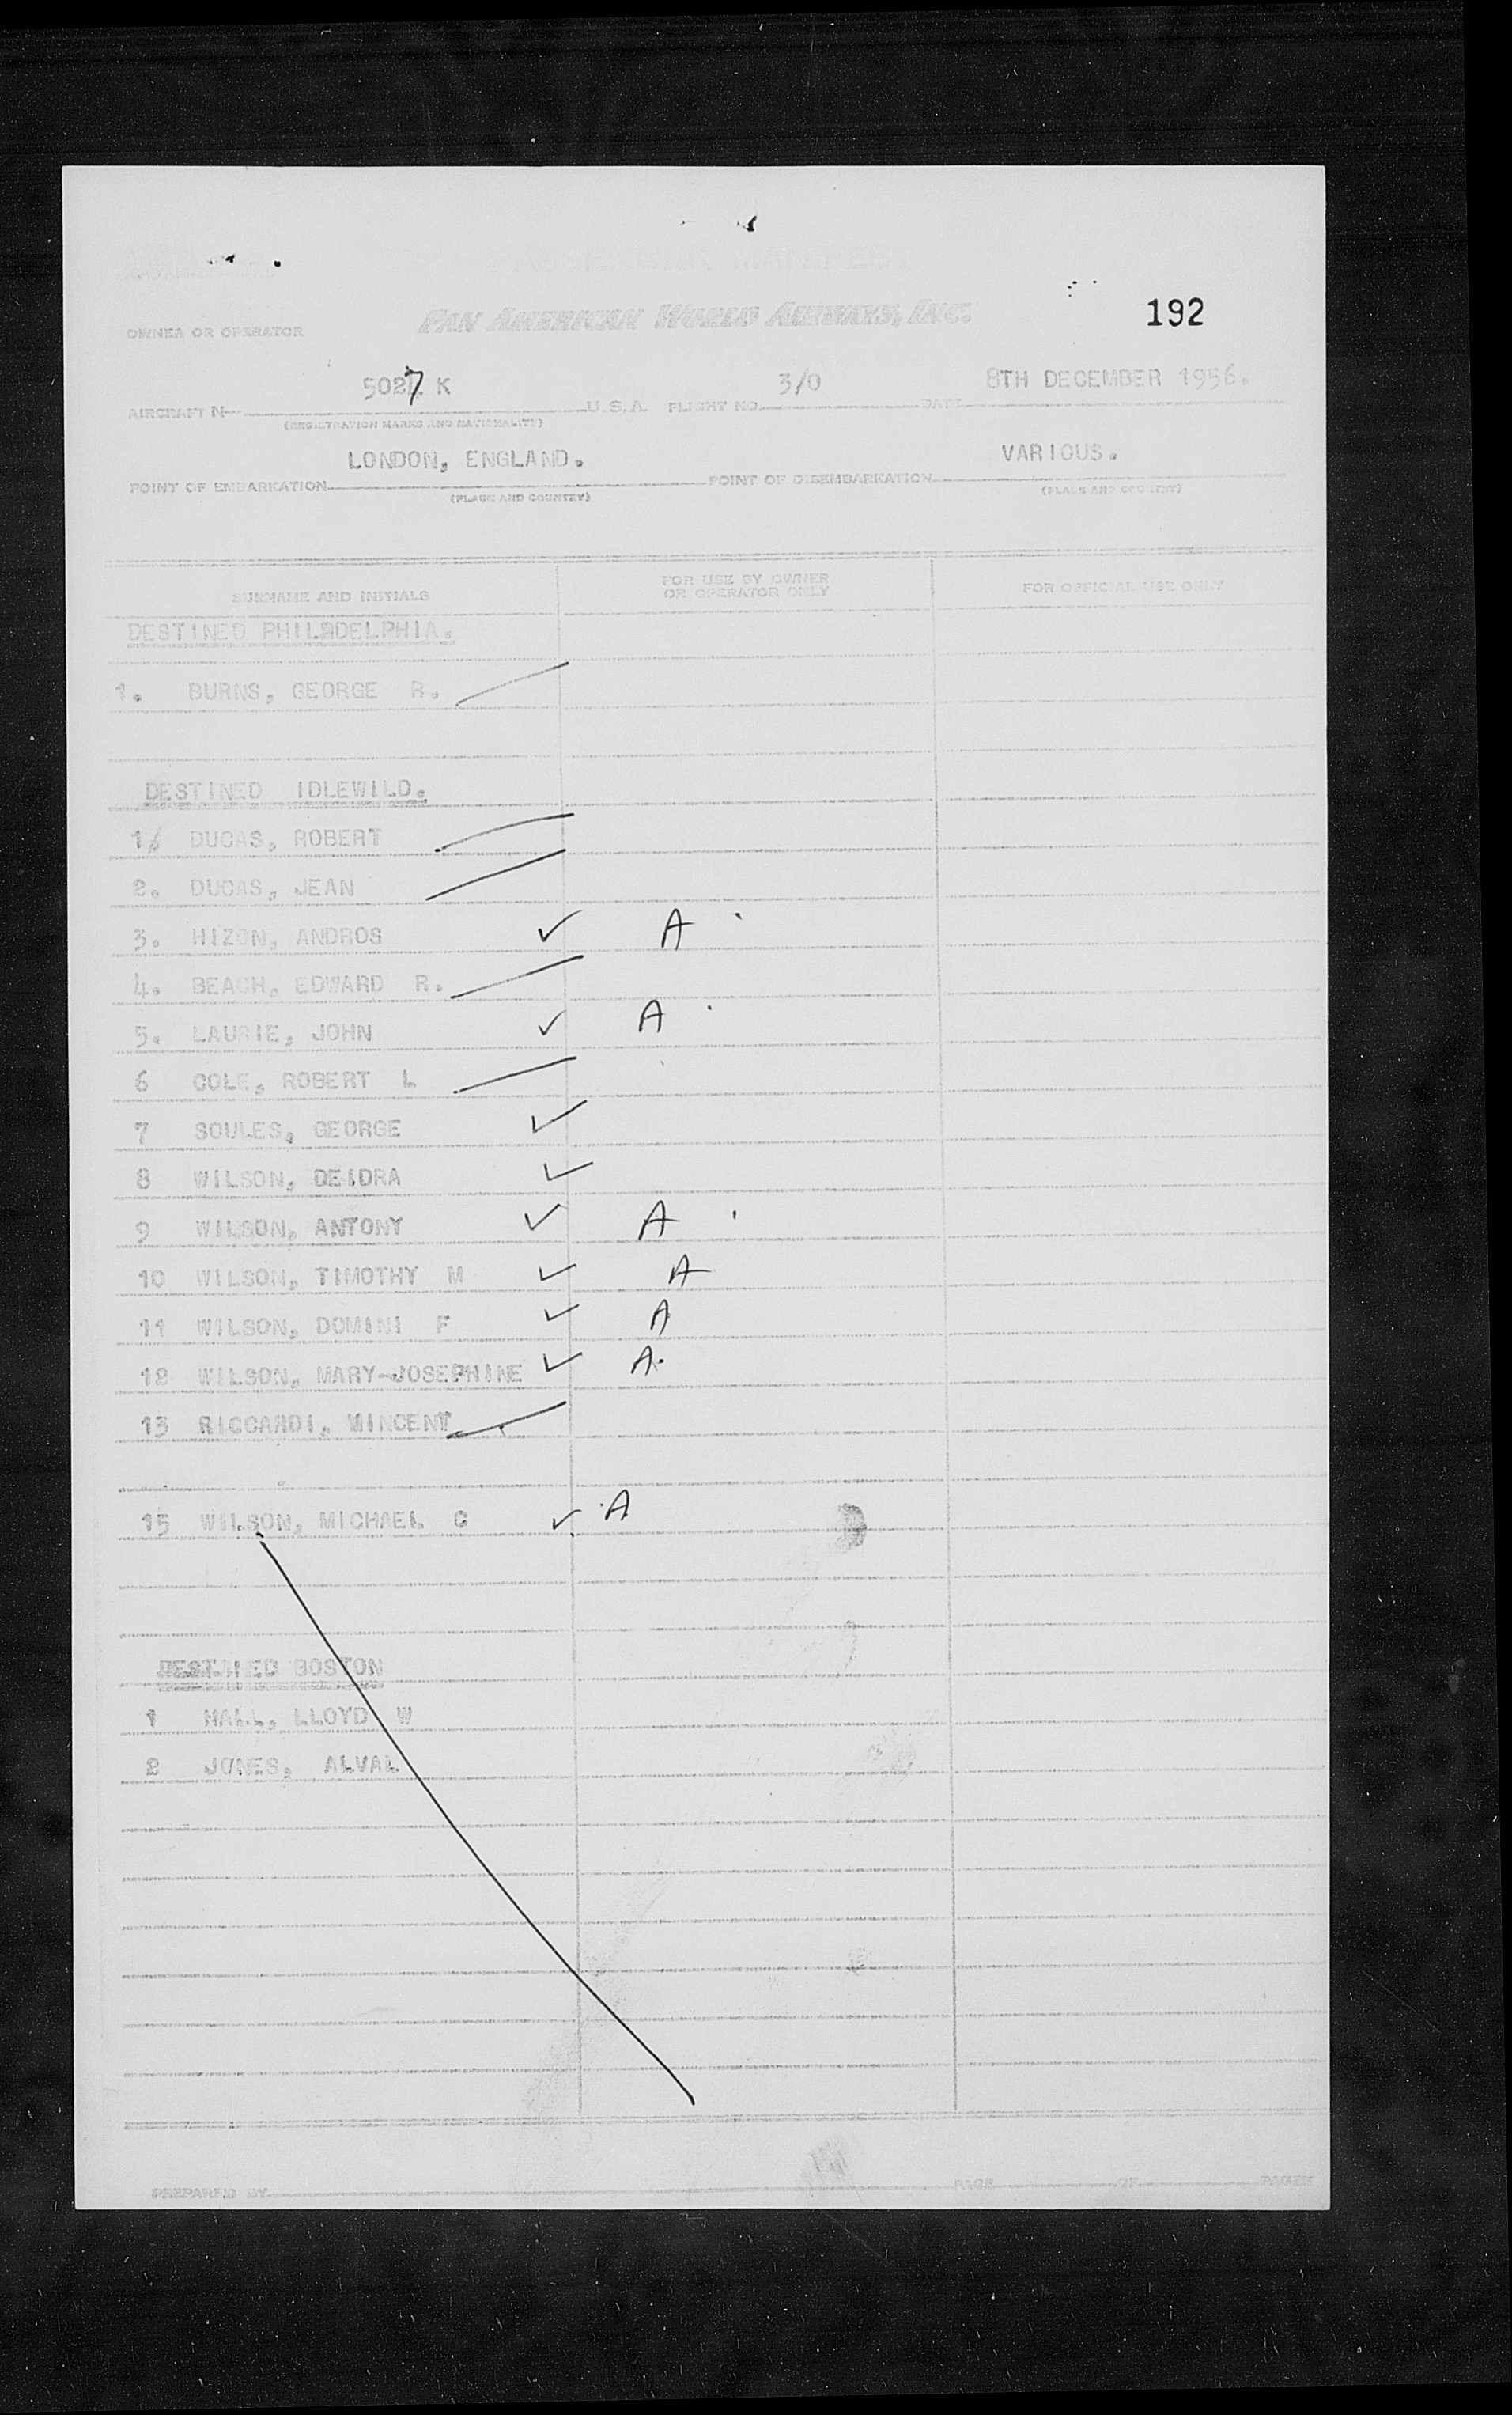 PASSENGER MANIFEST
192
OWNER OR OPERATOR PAN AMERICAN WORLD AIRWAYS, INC.
5027 K 3/0 8TH DECEMBER 1956.
AIRCRAFT N U.S.A. FLIGHT NO. DATE
(REGISTRATION MARKS AND NATIONALITY)
LONDON, ENGLAND. VARIOUS.
POINT OF EMBARKATION POINT OF DISEMBARKATION
(PLACE AND COUNTRY) (PLACE AND COUNTRY)
SURNAME AND INITIALS FOR USE BY OWNER OR OPERATOR ONLY FOR OFFICIAL USE ONLY
DESTINED PHILADELPHIA.
1. BURNS, GEORGE R.
DESTINED IDLEWILD.
1. DUCAS, ROBERT
2. DUCAS, JEAN
3. HIZON, ANDROS ✓ A
4. BEACH, EDWARD R.
5. LAURIE, JOHN ✓ A
6 COLE, ROBERT L
7 SOULES, GEORGE ✓
8 WILSON, DEIDRA ✓
9 WILSON, ANTONY ✓ A
10 WILSON, TIMOTHY M ✓ A
11 WILSON, DOMINI F ✓ A
12 WILSON, MARY-JOSEPHINE ✓ A
13 RICCARDI, VINCENT
15 WILSON, MICHAEL G ✓ A
DESTINED BOSTON
1 HALL, LLOYD W
2 JONES, ALVAL
PREPARED BY PAGE OF PAGES